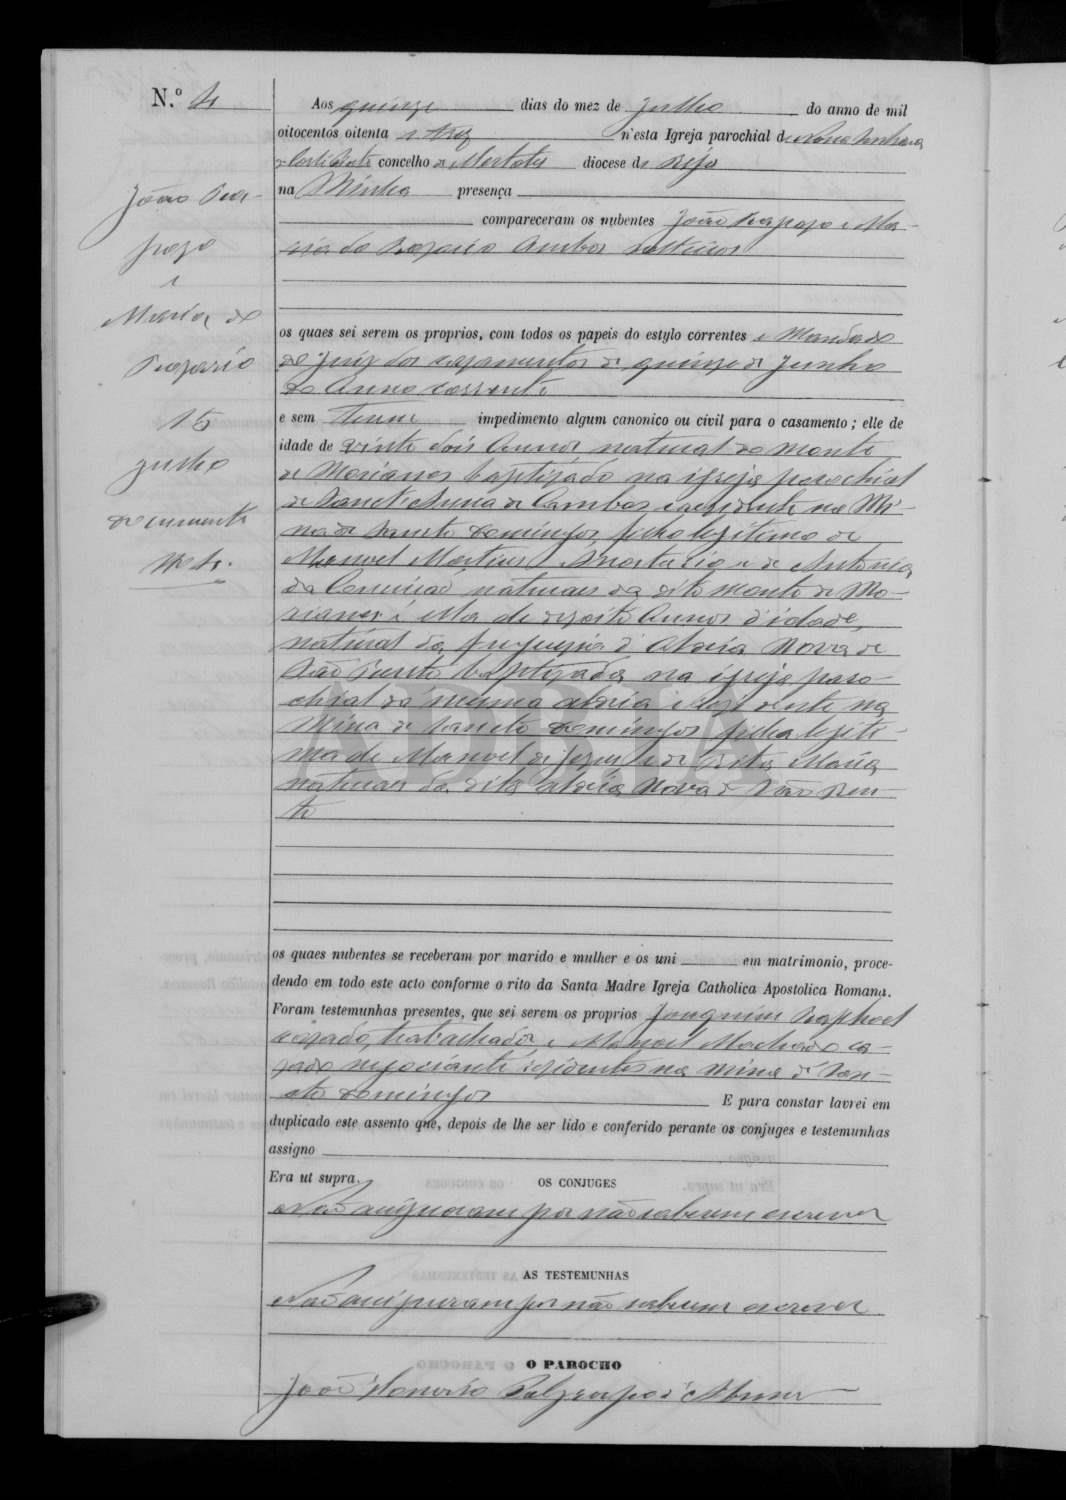 N.º 4
Aos quinze dias do mez de Julho do anno de mil
oitocentos oitenta e trez n'esta Igreja parochial de Nossa Senhora
concelho de Mertola diocese de Beja
na Minha presença
compareceram os nubentes João Raposo e Ma-
ria do Rosario Ambos solteiros
João Ra-
poso
e
Maria do
Rosario
15
Julho
documento
Nº 4.
os quaes sei serem os proprios, com todos os papeis do estylo correntes e Mandado
do Juiz dos casamentos de quinze de Junho
do Anno corrente
e sem terem impedimento algum canonico ou civil para o casamento; elle de
idade de vinte dois Annos, natural do Monte
de Marianes baptizado na igreja parochial
de Sanct'Anna de Cambas residente na Mi-
na de Sancto Domingos, filho legitimo de
Manoel Martins e de Antonia
da Conceicaõ, naturaes do dito monte de Ma-
rianes e ella de dezoito Annos d'idade,
natural da freguezia d'Aldeia Nova de
Saõ Bento baptizada na igreja paro-
chial da mesma aldeia residente na
Mina de Sancto Domingos filha legiti-
ma de Manoel de Jesus e de Rita Maria
naturaes da dita aldeia Nova de Saõ Ben-
to
ADBJA
os quaes nubentes se receberam por marido e mulher e os uni em matrimonio, proce-
dendo em todo este acto conforme o rito da Santa Madre Igreja Catholica Apostolica Romana.
Foram testemunhas presentes, que sei serem os proprios Joaquim Raphael
casado, trabalhador, e Manoel Machado ca-
zado negociante residentes na Mina de San-
cto Domingos E para constar lavrei em
duplicado este assento que, depois de lhe ser lido e conferido perante os conjuges e testemunhas
assigno
Era ut supra.
OS CONJUGES
Naõ assignaram por naõ saberem escrever
AS TESTEMUNHAS
Naõ assignaram por naõ saberem escrever
O PAROCHO
Joaõ